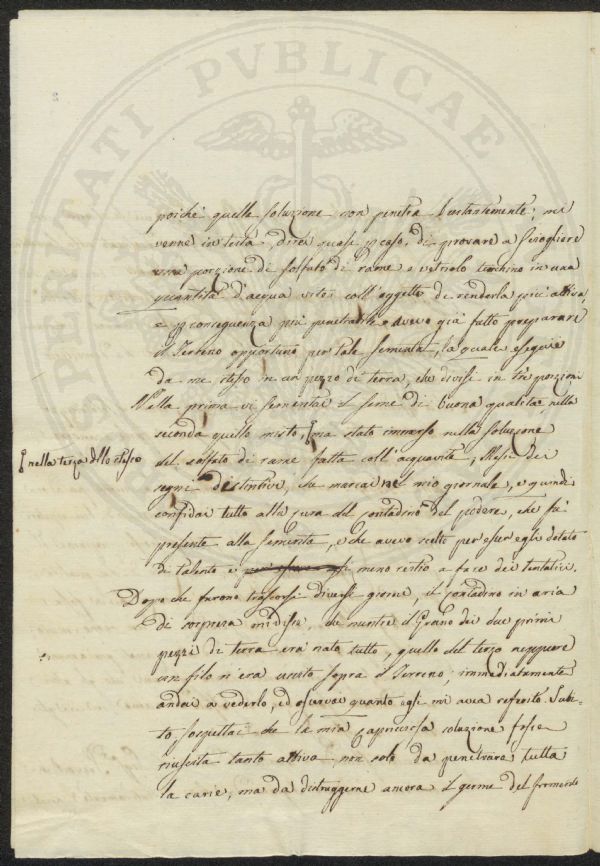 PROSPERITATI PVBLICAE
poichè quella soluzione non penetra bastantemente; mi
venne in testa direi quasi a caso, di provare a sciogliere
una porzione di solfato di rame o vetriolo turchino in una
quantità d'acqua vite coll'oggetto di renderla più attiva
e p conseguenza più penetrabile. Avevo già fatto preparare
il Terreno opportuno per tale sementa, la quale eseguii
da me stesso in un pezzo di terra, che divisi in tre porzioni
Nella prima vi sementai il seme di buona qualità nella
seconda quello misto, [ma stato immerso nella soluzione
[nella terza dello stesso
del solfato di rame fatta coll'acquavite; Messi dei
segni distintivi, che marcai nel mio giornale, e quindi
confidai tutto alla cura del contadino del podere, che fù
presente alla sementa, e che avevo scelto per esser egli dotato
di talento e meno restio a fare dei tentativi.
Dopo che furono trascorsi diversi giorni, il contadino in aria
di sorpresa mi disse, che mentre il Grano dei due primi
pezzi di terra era nato tutto, quello del terzo neppure
un filo n'era uscito sopra il Terreno: immediatamente
andai a vederlo, ed osservai quanto egli mi avea referito. Subi-
to sospettai che la mia capricciosa soluzione fosse
riuscita tanto attiva non solo da penetrare tutta
la carie, ma da distruggerne ancora il germe del frumento